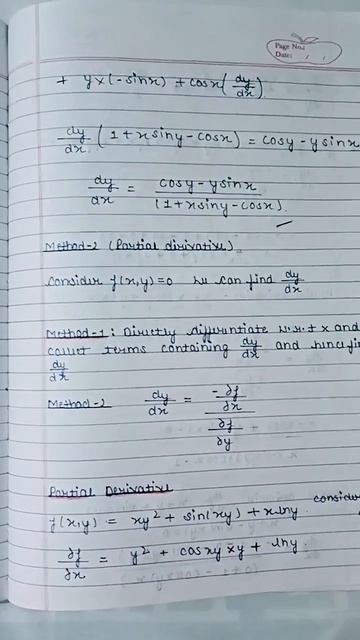 Page No.:
Date: / /
+ y×(-sinx) + cosx(dy/dx)
dy/dx (1+xsiny-cosx) = cosy-ysinx
dy/dx = cosy-ysinx/(1+xsiny-cosx)
Method-2 (Partial dirivative)
consider f(x,y)=0 we can find dy/dx
Method-1: Directly differentiate w.r.t x and
collect terms containing dy/dx and
dy/dx
Method-2 dy/dx = -∂f/∂x / ∂f/∂y
Partial Derivative
consider
f(x,y) = xy² + sin(xy) + xlny
∂f/∂x = y² + cosxy×y + lny